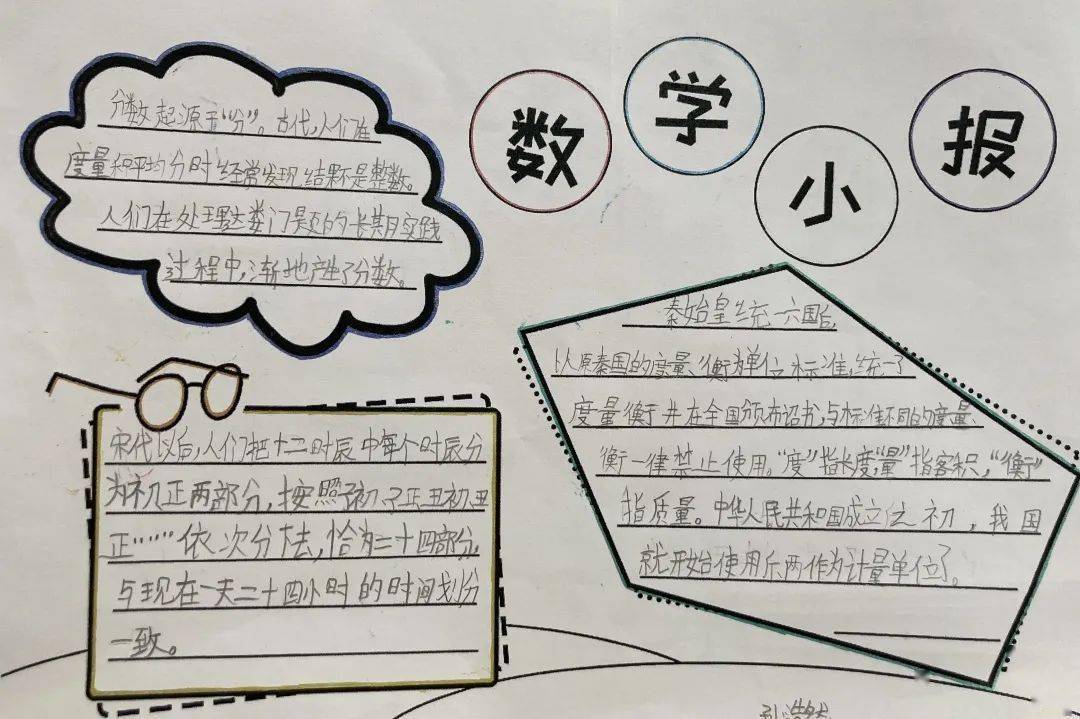 数学小报
分数起源于“分”。古代,人们在
度量和平均分时经常发现结果不是整数。
人们在处理这类问题的长期实践
过程中,渐地产生了分数。
秦始皇统一六国后,
以原秦国的度量、衡为单位标准,统一了
度量衡并在全国颁布诏书,与标准不同的度量、
衡一律禁止使用。“度”指长度,“量”指容积,“衡”
指质量。中华人民共和国成立之初,我国
就开始使用斤两作为计量单位了。
宋代以后,人们把十二时辰中每个时辰分
为初、正两部分,按照子初、子正、丑初、丑
正……依次分法,恰为二十四部分,
与现在一天二十四小时的时间划分
一致。
孙浩然